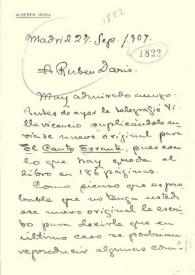 ALBERTO INSÚA
1822
Madrid 27. Sep. 1907.
1822
A Ruben Darío.
Muy admirado amigo:
Antes de ayer le telegrafió Vi-
llavicencio suplicándole en-
víase nuevo original para
El Canto Errante, pues con
lo que hay queda el
libro en 136 páginas.
Como pienso que es pro-
bable que no tenga usted
ese nuevo original le escri-
bo para decirle que en
último caso se podrían
reproducir algunas com-